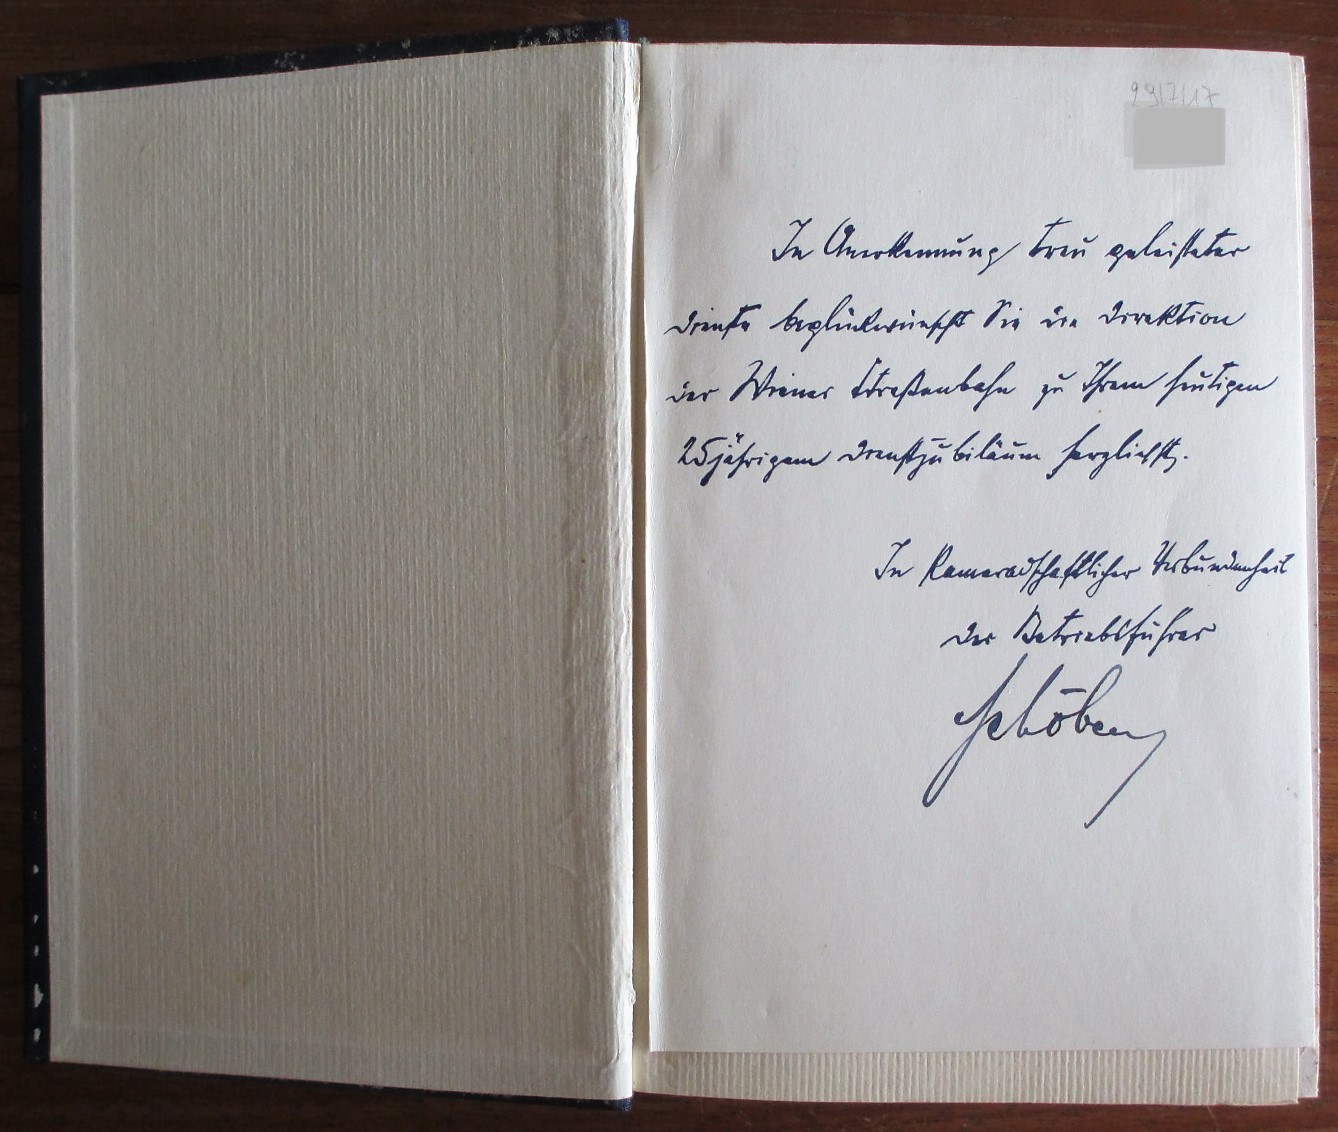 29/7/17
In Anerkennung treu geleisteter
Dienste beglückwünscht Sie die Direktion
der Wiener Straßenbahn zu Ihrem heutigen
25jährigem Dienstjubiläum herzlichst.
In kameradschaftlicher Verbundenheit
Der Betriebsführer